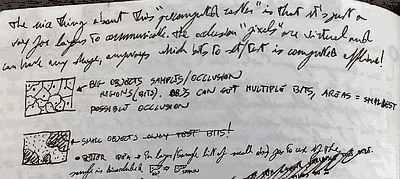 The nice thing about this "precomputed raster" is that it's just a
way for layers to communicate. The occlusion "pixels" are virtual and
can have any shape, anyways which bits to set/test is computed offline!
← BIG OBJECTS SAMPLES/OCCLUSION
REGIONS (BITS). OBJS CAN GET MULTIPLE BITS, AREAS = SMALLEST
POSSIBLE OCCLUSION
← SMALL OBJECTS ONLY TEST BITS!
• BETTER IDEA → Per layer/sample list of small objs to use if the
sample is